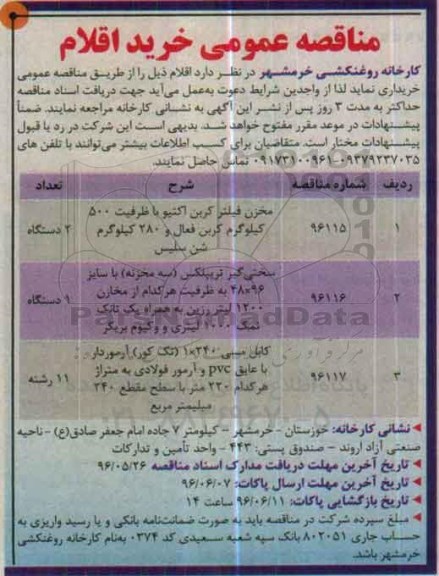 مناقصه عمومی خرید اقلام
کارخانه روغنکشی خرمشهر در نظر دارد اقلام ذیل را از طریق مناقصه عمومی
خریداری نماید لذا از واجدین شرایط دعوت به‌عمل می‌آید جهت دریافت اسناد مناقصه
حداکثر به مدت ۳ روز پس از نشر این آگهی به نشانی کارخانه مراجعه نمایند. ضمناً
پیشنهادات در موعد مقرر مفتوح خواهد شد. بدیهی است این شرکت در رد یا قبول
پیشنهادات مختار است. متقاضیان برای کسب اطلاعات بیشتر می‌توانند با تلفن های
۰۹۳۷۹۲۳۷۰۳۵-۰۹۱۷۳۱۰۰۹۶۱ تماس حاصل نمایند.
ردیف شماره مناقصه شرح تعداد
مخزن فیلتر کربن اکتیو با ظرفیت ۵۰۰
۱ ۹۶۱۱۵ کیلوگرم کربن فعال و ۲۸۰ کیلوگرم ۲ دستگاه
شن سیلیس
سختی‌گیر تریپلکس (سه مخزنه) با سایز
۲ ۹۶۱۱۶ ۴۸×۹۶ به ظرفیت هرکدام از مخازن ۱ دستگاه
۱۲۰۰ لیتر رزین به همراه یک تانک
نمک لیتری و وکیوم بریکر
کابل مسی ۲۴۰×۱ (تک کور) آرموردار
۳ ۹۶۱۱۷ با عایق pvc و آرمور فولادی به متراژ ۱۱ رشته
هرکدام ۲۲۰ متر با سطح مقطع ۲۴۰
میلیمتر مربع
نشانی کارخانه: خوزستان - خرمشهر - کیلومتر ۷ جاده امام جعفر صادق(ع) -ناحیه
صنعتی آزاد اروند - صندوق پستی: ۴۴۳ - واحد تأمین و تدارکات
تاریخ آخرین مهلت دریافت مدارک اسناد مناقصه ۹۶/۰۵/۲۶
تاریخ آخرین مهلت ارسال پاکات: ۹۶/۰۶/۰۷
تاریخ بازگشایی پاکات: ۹۶/۰۶/۱۱ ساعت ۱۴
مبلغ سپرده شرکت در مناقصه باید به صورت ضمانت‌نامه بانکی و یا رسید واریزی به
حساب جاری ۸۰۲۰۵۱ بانک سپه شعبه سعیدی کد ۰۳۷۴ به‌نام کارخانه روغنکشی
خرمشهر باشد.